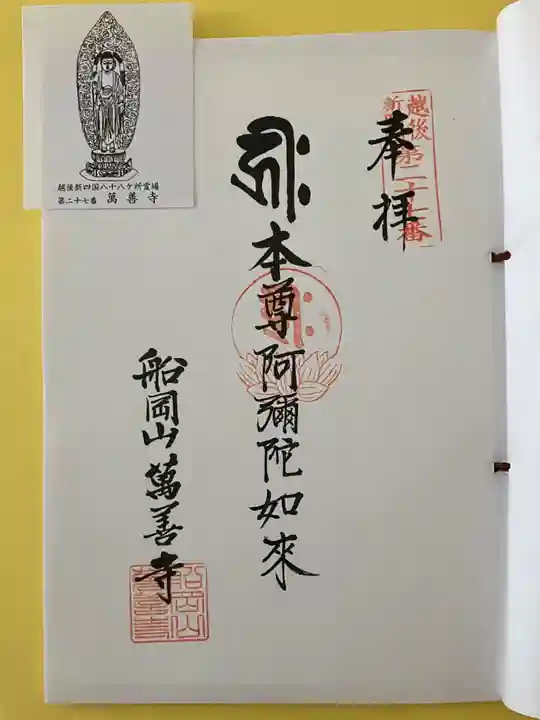 越後新四国八十八ケ所霊場
第二十七番 萬善寺
越後
新
第二十七番
奉拝
本尊阿彌陀如來
船岡山萬善寺
船岡山
萬善寺